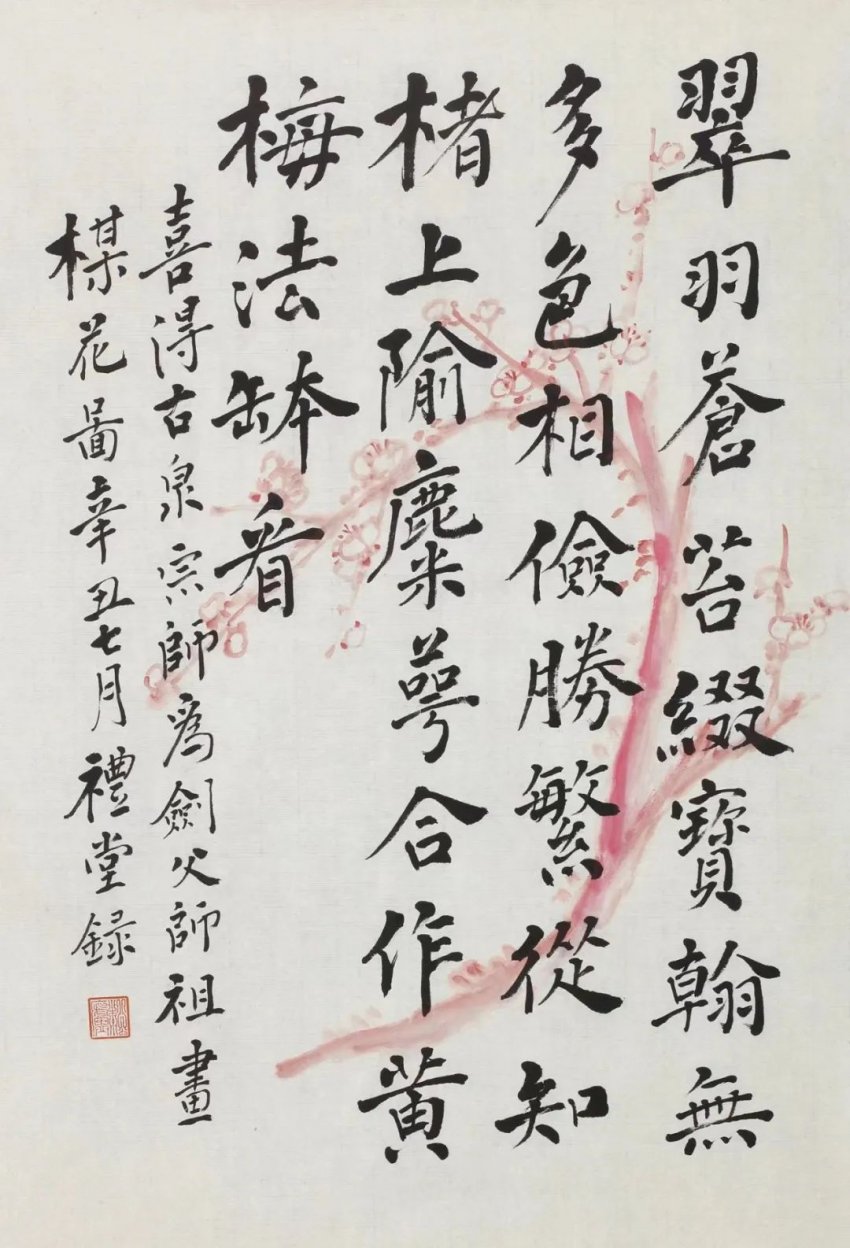 翠羽蒼苔綴寶翰無
多色相儉勝繁從知
楮上隃麋萼合作黄
梅法缽看
喜得古泉宗師為劍父師祖畫
楳花啚辛丑七月禮堂録